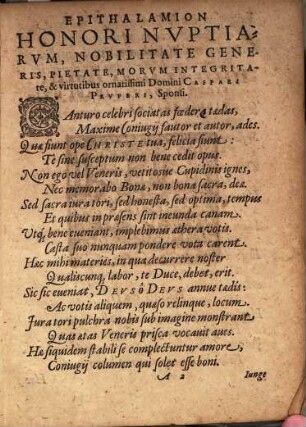 EPITHALAMION
HONORI NVPTIA-
RVM, NOBILITATE GENE-
RIS, PIETATE, MORVM INTEGRITA-
te, & virtutibus ornatissimi Domini CASPARI
PEVFERI, Sponsi.
CAnturo celebri sociatas fœdere tædas,
Maxime Coniugij fautor et autor, ades.
Quæ fiunt ope CHRISTE tua, felicia fiunt:
Te sine susceptum non bene cedit opus.
Non ego vel Veneris, vetitosúe Cupidinis ignes,
Nec memorabo Bona, non bona sacra, deæ.
Sed sacra iura tori, sed honesta, sed optima, tempus
Et quibus in præsens sint ineunda canam.
Utq́; bene eueniant, implebimus æthera votis.
Casta suo nunquam pondere vota carent.
Hæc mihi materies, in qua decurrere noster
Qualiscunq́; labor, te Duce, debet, erit.
Sic sic eueniat, DEVS ô DEVS annue tædis:
Ac votis aliquem, quæso relinque, locum.
Iura tori pulchra nobis sub imagine monstrant
Quas ætas Veneris prisca vocauit aues.
Hæ siquidem stabili se complectuntur amore,
Coniugij columen qui solet esse boni.
A 2 Iunge